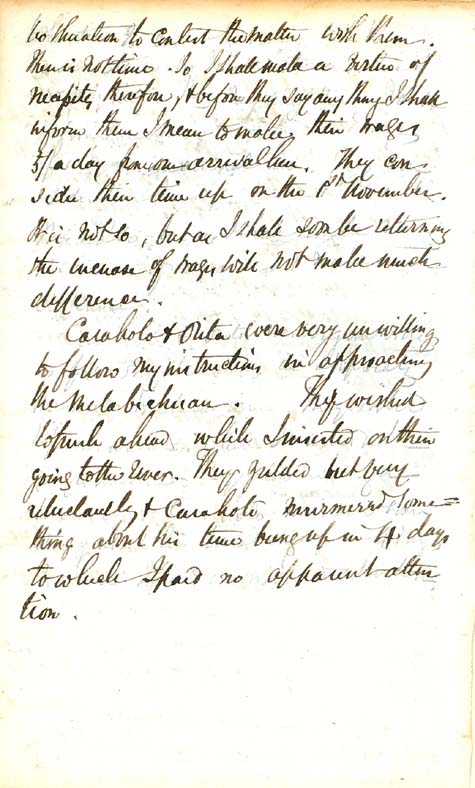 situation to contest the matter with them.
There is not time. So I shall make a virtue of
necessity, therefore, & before they say any thing I shall
inform them I mean to make their wages
5/ a day from our arrival here. They con
sider their time up on the 1st November.
It is not so, but as I shall soon be returning
the increase of wages will not make much
difference.
Carabolo & Orita were very unwilling
to follow my instructions in approaching
the Metabichuan. They wished
to push ahead while I insisted on their
going to the River. They yielded but very
reluctantly & Caraboto murmered some=
thing about his time being up in 4 days
to which I paid no apparent atten
tion.